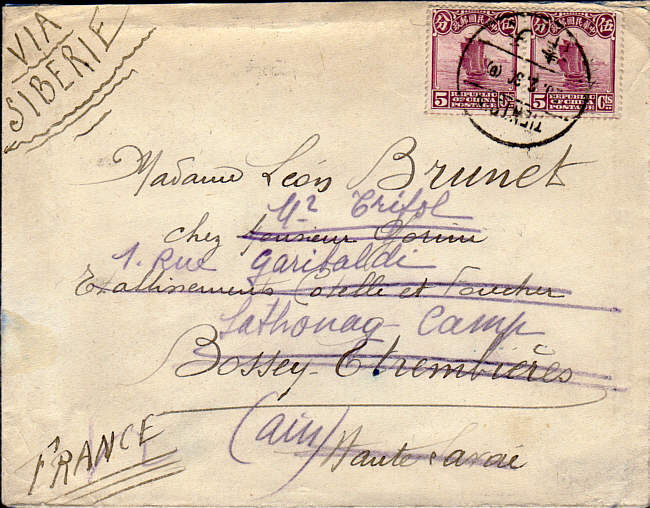 VIA
SIBERIE
伍 中華民國郵政 分
伍 中華民國郵政 分
5 REPUBLIC OF CHINA POSTAGE
5 REPUBLIC OF CHINA POSTAGE Cts
TIENTSIN
Madame Léon Brunet
Mr Trifol
chez Monsieur
1. Rue Garibaldi
Etablissements Cotelle et Foucher
Sathonay-Camp
Bossey-Etrembières
(Ain)
Haute Savoie
FRANCE